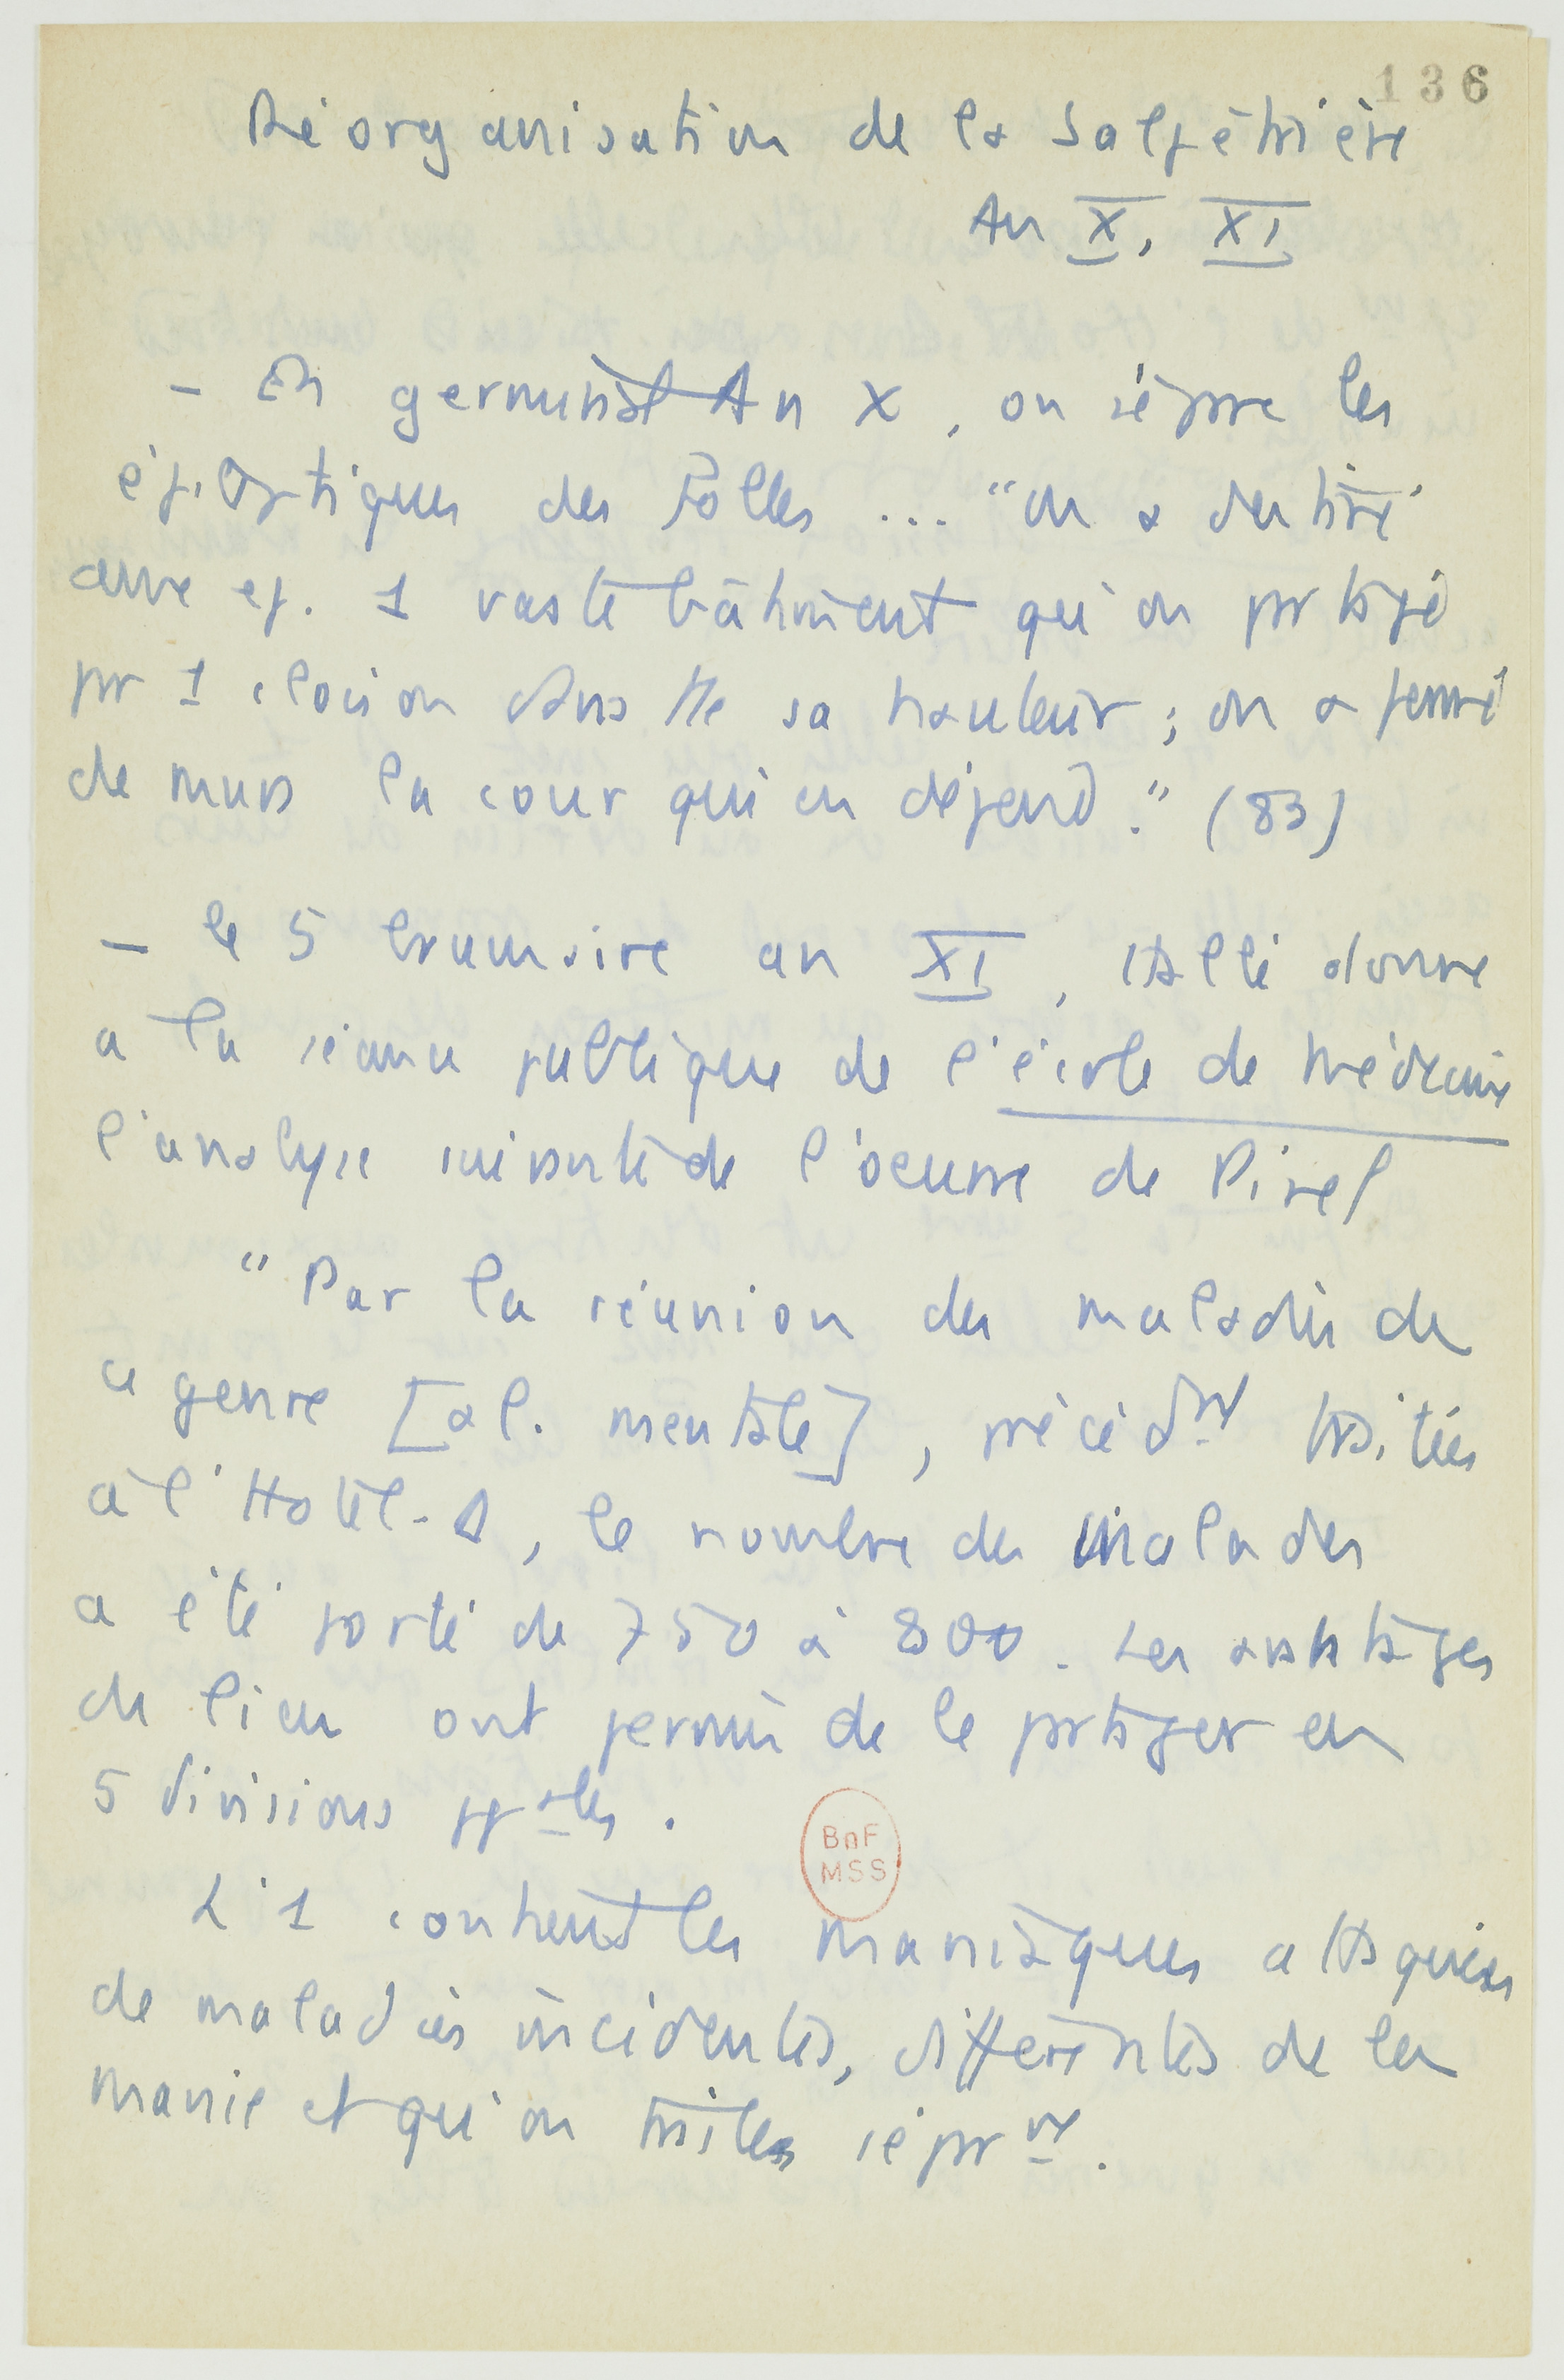 136
Réorganisation de la Salpêtrière
An X, XI
- En germinal An X, on sépare les
épileptiques des folles ... "on a destiné
aux ep. 1 vaste bâtiment qu'on partagé
par 1 cloison dans tte sa hauteur ; on a fermé
de murs la cour qui en dépend." (83)
- le 5 brumaire an XI, Hallé donne
a la séance publique de l'école de médecine
l'analyse suivante de l'oeuvre de Pinel
"Par la réunion des maladies de
ce genre [al. mentale], précédt traitées
à l'Hotel-D, le nombre des malades
a été porté de 750 à 800. Les avantages
du lieu ont permis de le partager en
5 divisions ppales.
L'1 contient les maniaques attaquées
de maladies incidentes, différentes de la
manie et qu'on traite sépart.
BnF
MSS